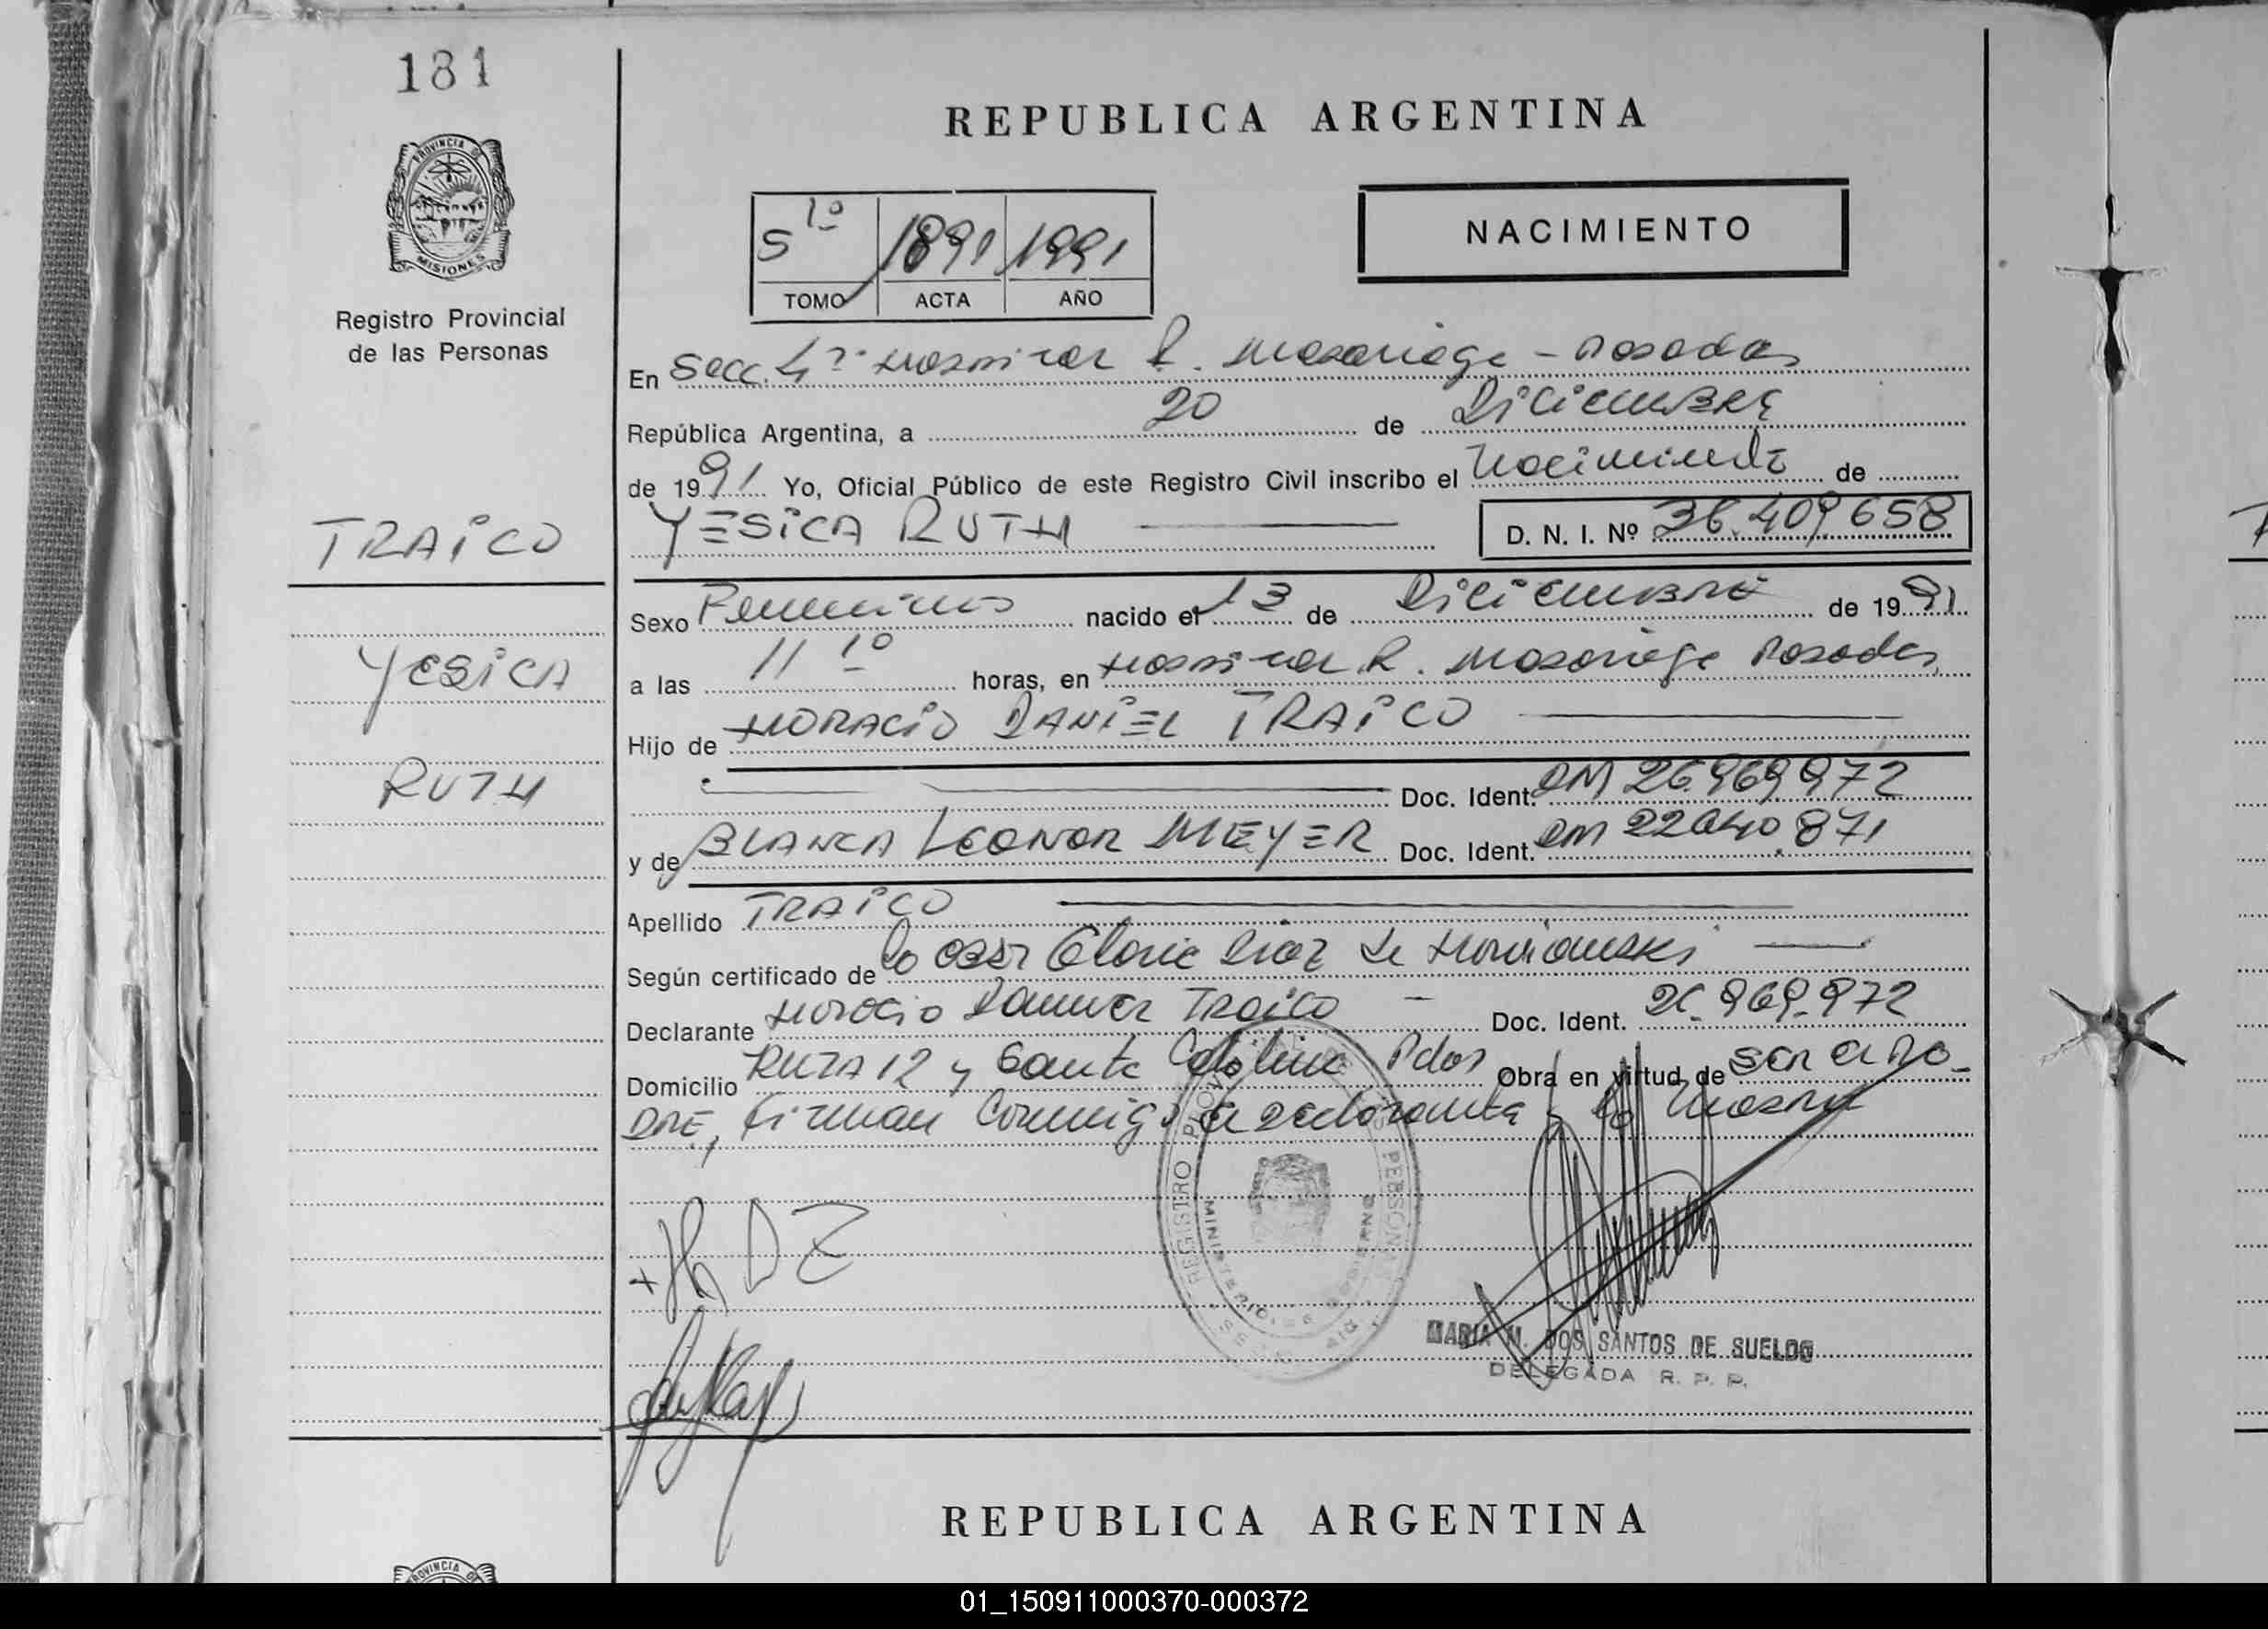 181
PROVINCIA DE
MISIONES
Registro Provincial
de las Personas
TRAICO
YESICA
RUTH
REPUBLICA ARGENTINA
5 1º 1891 1991
TOMO ACTA AÑO
NACIMIENTO
En Secc. 4ª Hospital R. Madariaga - Posadas
República Argentina, a 20 de Diciembre
de 1991 Yo, Oficial Público de este Registro Civil inscribo el Nacimiento de
YESICA RUTH D. N. I. Nº 36.409.658
Sexo Femenino nacido el 13 de Diciembre de 1991
a las 11 10 horas, en Hospital R. Madariaga Posadas
Hijo de HORACIO DANIEL TRAICO
Doc. Ident. DM 26.969.972
y de BLANCA LEONOR MEYER Doc. Ident. DM 22.640.871
Apellido TRAICO
Según certificado de la Obst Gloria Diaz de
Declarante Horacio Daniel Traico - Doc. Ident. 26.969.972
Domicilio RUTA 12 y Santa Catalina Pdas Obra en virtud de ser el PA-
DRE, Firman Conmigo el declarante y la Madre
REGISTRO PROV PERSONAS
MINISTERIO DE GOBIERNO
MARIA M. DOS SANTOS DE SUELDO
DELEGADA R. P. P.
REPUBLICA ARGENTINA
PROVINCIA
01_150911000370-000372